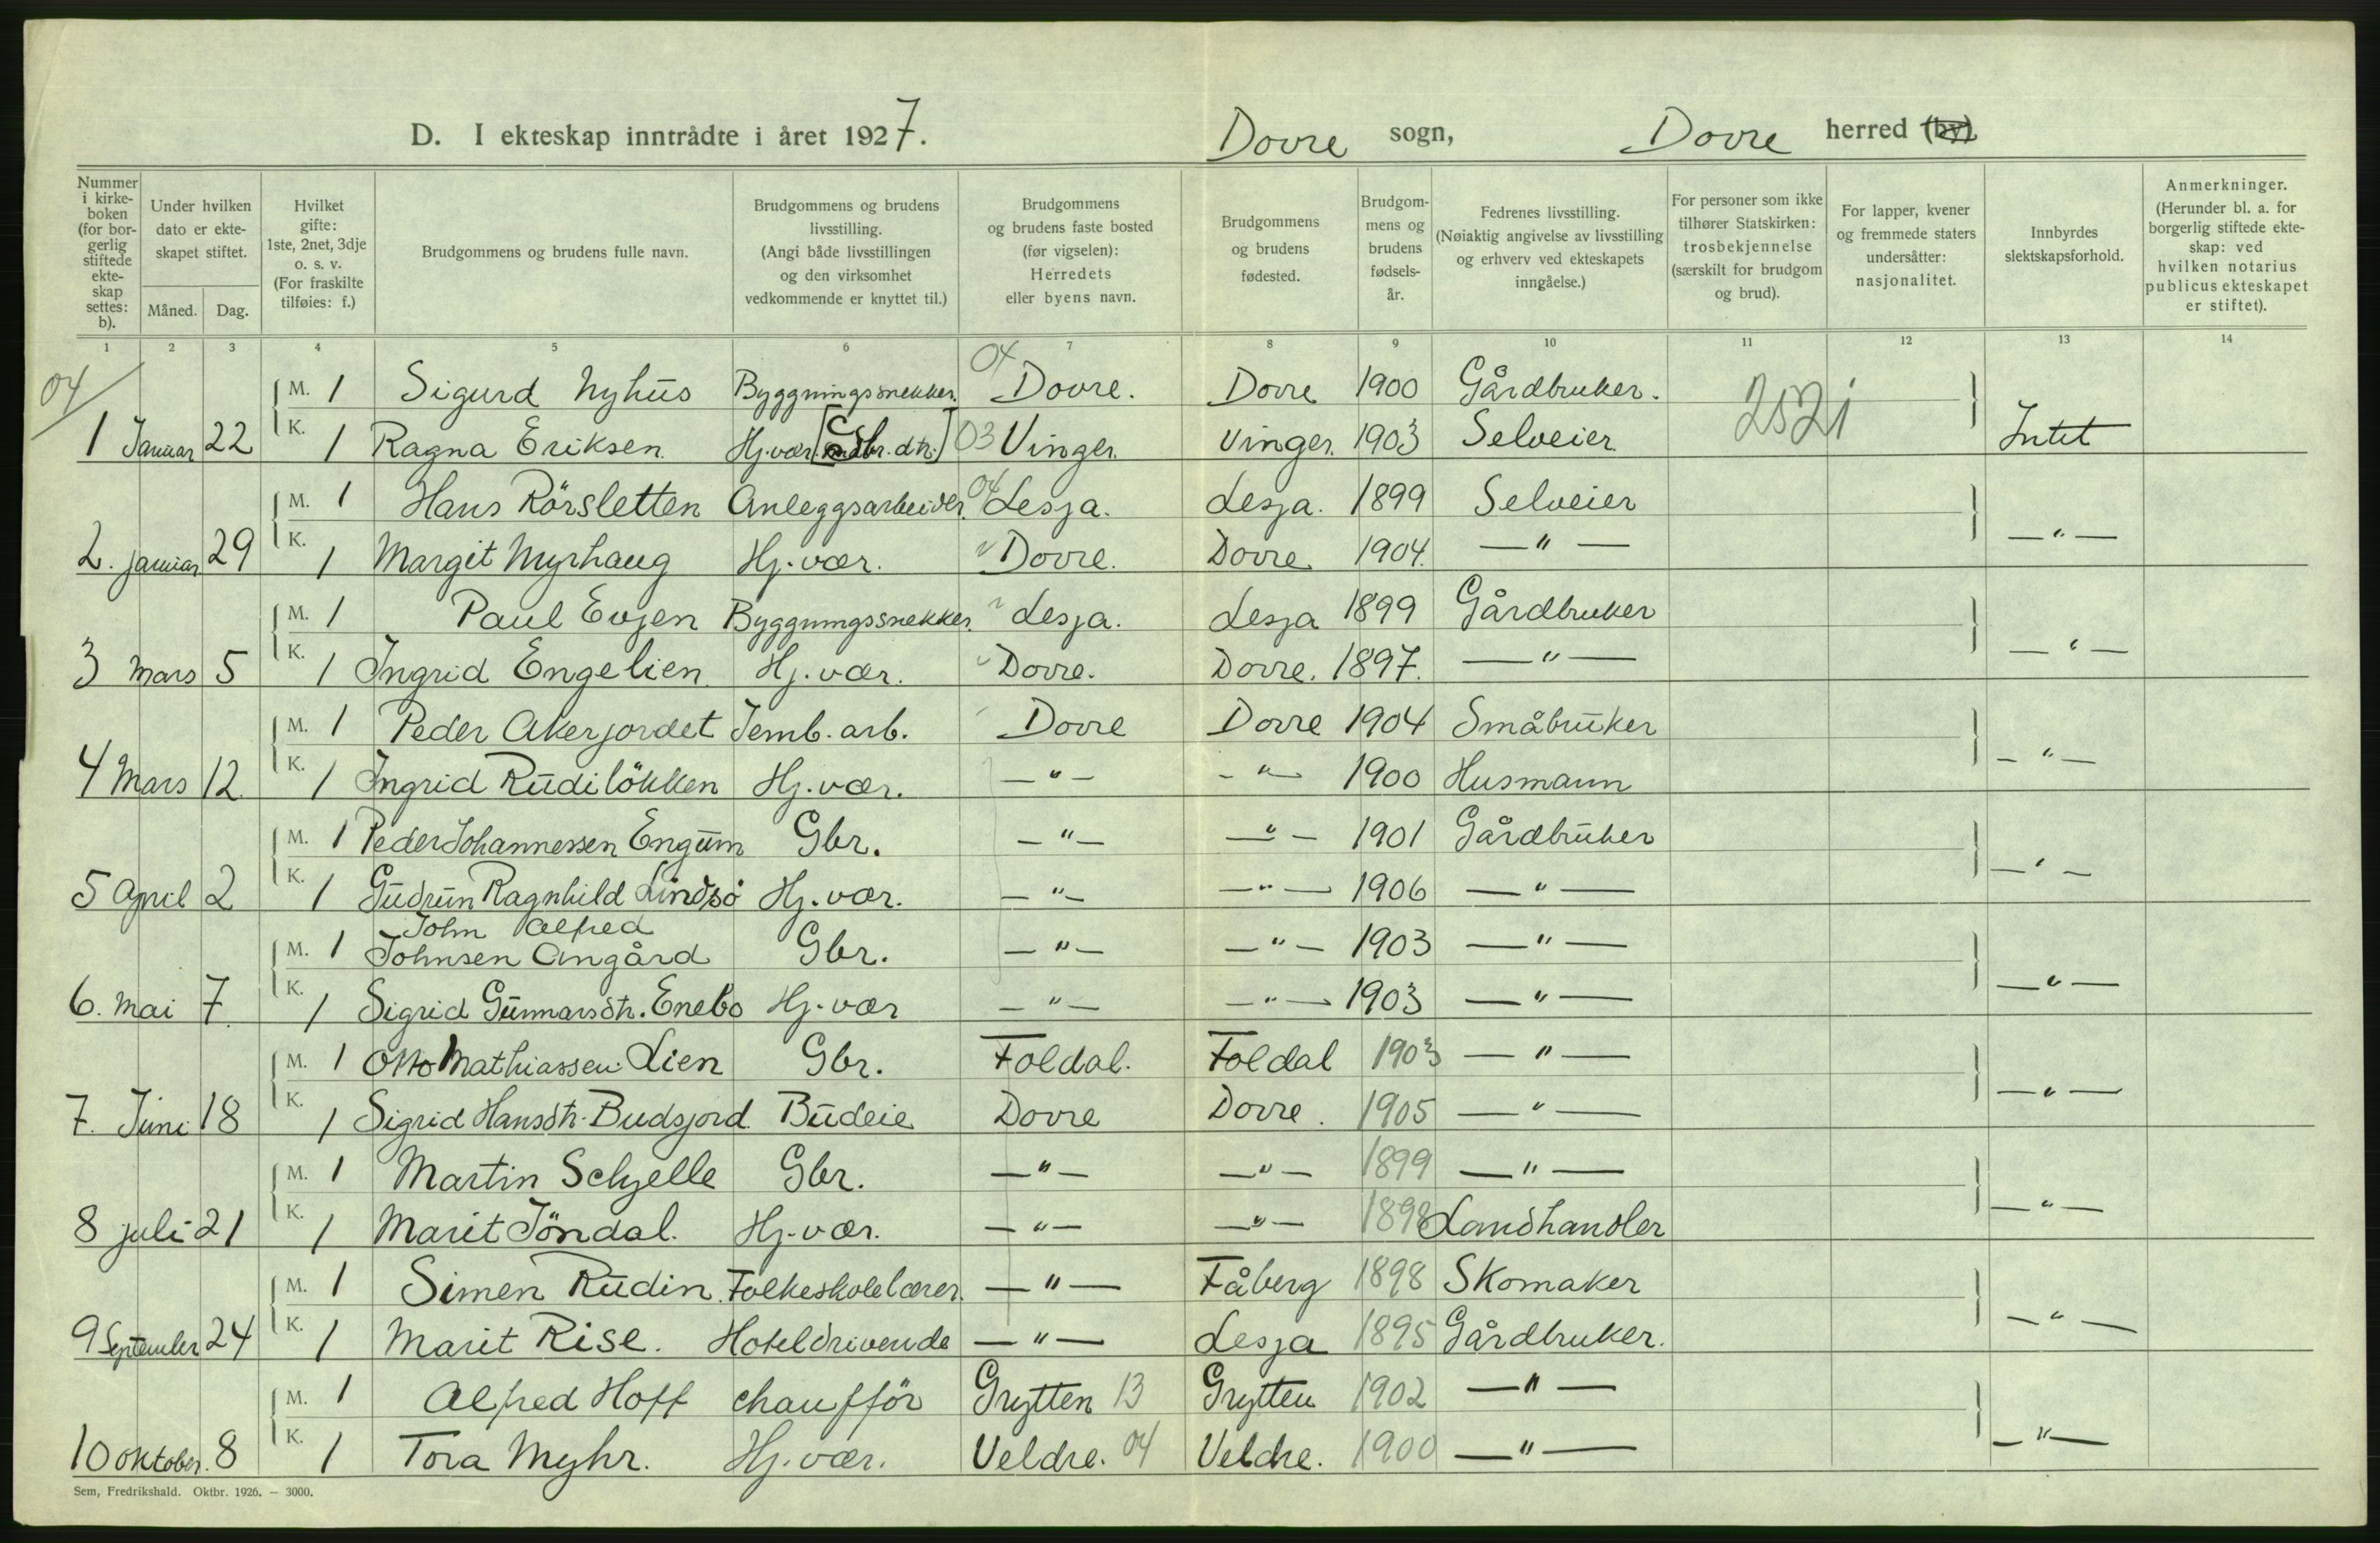 D. I ekteskap inntrådte i året 1927. Dovre sogn, Dovre herred (by)
Nummer i kirkeboken (for borgerlig stiftede ekteskap settes: b).
Under hvilken dato er ekteskapet stiftet.
Måned. Dag.
Hvilket gifte: 1ste, 2net, 3dje o. s. v. (For fraskilte tilføies: f.)
Brudgommens og brudens fulle navn.
Brudgommens og brudens livsstilling. (Angi både livsstillingen og den virksomhet vedkommende er knyttet til.)
Brudgommens og brudens faste bosted (før vigselen): Herredets eller byens navn.
Brudgommens og brudens fødested.
Brudgommens og brudens fødselsår.
Fedrenes livsstilling. (Nøiaktig angivelse av livsstilling og erhverv ved ekteskapets inngåelse.)
For personer som ikke tilhører Statskirken: trosbekjennelse (særskilt for brudgom og brud).
For lapper, kvener og fremmede staters undersåtter: nasjonalitet.
Innbyrdes slektskapsforhold.
Anmerkninger. (Herunder bl. a. for borgerlig stiftede ekteskap: ved hvilken notarius publicus ekteskapet er stiftet).
1 2 3 4 5 6 7 8 9 10 11 12 13 14
04 M. 1 Sigurd Nyhus Byggningssnekker. 04 Dovre. Dovre 1900 Gårdbruker. 252i
1 Januar 22 K. 1 Ragna Eriksen Hj.vær. [Gbr. dtr.] 03 Vinger. Vinger. 1903 Selveier Intet
M. 1 Hans Rörsletten Anleggsarbeider. 04 Lesja. Lesja. 1899 Selveier
2. januar 29 K. 1 Margit Myrhaug Hj.vær. Dovre. Dovre 1904. —"— —"—
M. 1 Paul Evjen Byggningssnekker. " Lesja. Lesja 1899 Gårdbruker
3 Mars 5 K. 1 Ingrid Engelien Hj.vær. Dovre. Dovre. 1897. —"— —"—
M. 1 Peder Akerjordet Jernb. arb. Dovre Dovre 1904 Småbruker
4 Mars 12. K. 1 Ingrid Rudilökken Hj.vær. —"— —"— 1900 Husmann —"—
M. 1 Peder Johannessen Engum Gbr. —"— —"— 1901 Gårdbruker
5 April 2 K. 1 Gudrun Ragnhild Lindsö Hj.vær. —"— —"— 1906 —"— —"—
John Alfred
M. 1 Johnsen Angård Gbr. —"— —"— 1903 —"—
6. Mai 7. K. 1 Sigrid Gunnarsdtr. Enebo Hj.vær —"— —"— 1903 —"— —"—
M. 1 Otto Mathiassen Lien Gbr. Foldal. Foldal 1903 —"—
7. Juni 18 K. 1 Sigrid Hansdtr. Budsjord. Budeie Dovre Dovre. 1905 —"— —"—
M. 1 Martin Schjelle Gbr. —"— —"— 1899 —"—
8 juli 21 K. 1 Marit Jöndal. Hj.vær. —"— —"— 1898 Landhandler —"—
M. 1 Simen Rudin. Folkeskolelærer. —"— Fåberg 1898 Skomaker
9 September 24 K. 1 Marit Rise. Hoteldrivende —"— Lesja 1895 Gårdbruker. —"—
M. 1 Alfred Hoff chaufför Grytten 13 Grytten 1902 —"—
10 oktober. 8 K. 1 Tora Myhr. Hj.vær. Veldre. 04 Veldre. 1900 —"— —"—
Sem, Fredrikshald. Oktbr. 1926. — 3000.